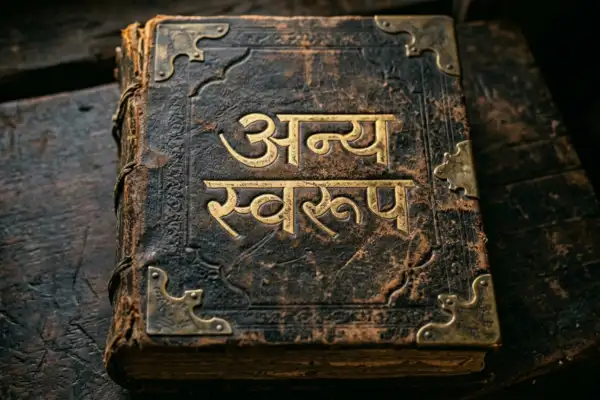 अन्य
स्वरूप